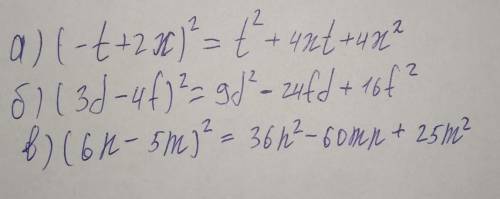 а) (-t+2x)² = t² + 4xt + 4x²
б) (3d-4f)² = 9d² - 24fd + 16f²
в) (6n - 5m)² = 36n² - 60mn + 25m²